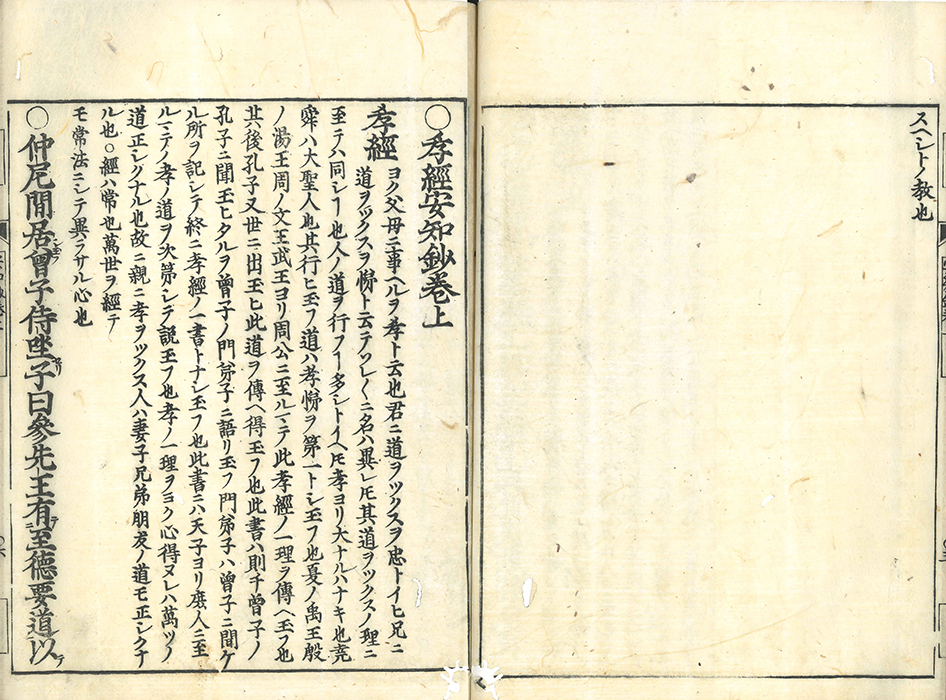 スヘシトノ教也
○孝經安知鈔卷上
孝經
ヨク父母ニ事ヘルヲ孝ト云也君ニ道ヲツクスヲ忠トイヒ兄ニ
道ヲツクスヲ悌ト云テソレ〱ニ名ハ異レ𪜈其道ヲツクスノ理ニ
至テハ同シー也人ノ道ヲ行フー多シトイヘ𪜈孝ヨリ大ナルハナキ也堯
舜ハ大聖人也其行ヒ玉フ道ハ孝悌ヲ第一トシ玉フ也夏ノ禹王殷
ノ湯王周ノ文王武王ヨリ周公ニ至ルマテ此孝經ノ一理ヲ傳ヘ玉フ也
其後孔子又世ニ出玉ヒ此道ヲ傳ヘ得玉フ也此書ハ則チ曾子ノ
孔子ニ聞玉ヒタルヲ曾子ノ門弟子ニ語リ玉フ門弟子ハ曾子ニ聞ケ
ル所ヲ記シテ終ニ孝經ノ一書トナシ玉フ也此書ニハ天子ヨリ庶人ニ至
ルマテノ孝ノ道ヲ次第シテ説玉フ也孝ノ一理ヲヨク心得ヌレハ萬ツノ
道正シクナル也故ニ親ニ孝ヲツクス人ハ妻子兄弟朋友ノ道モ正シクナ
ル也○經ハ常也萬世ヲ經テ
モ常法ニシテ異ラサル心也
○仲尼間居曾子侍坐子曰參先王有至德要道以